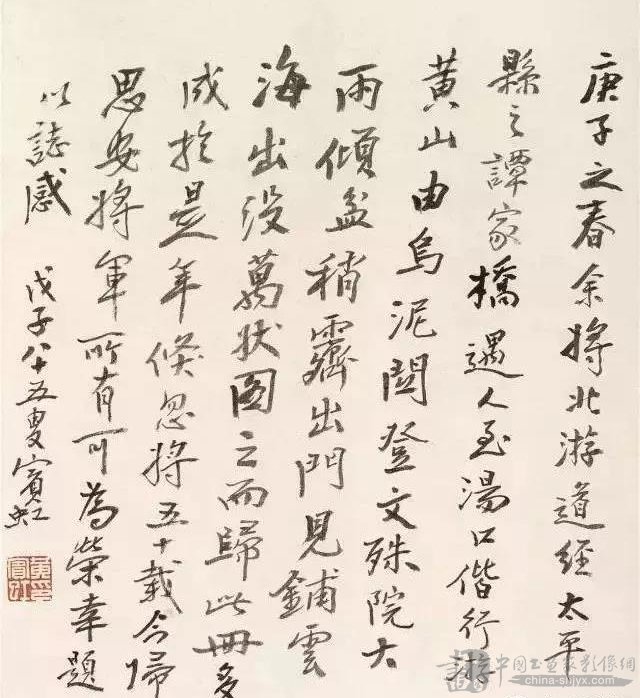 庚子之春余将北游道經太平
縣之譚家橋遇人至湯口偕行游
黄山由烏泥關登文殊院大
雨傾盆稍霽出門見鋪雲
海出没萬狀圖之而歸此冊多
成於是年倏忽将五十載今歸
思安将軍所有可為榮幸題
以誌感 戊子八十五叟賓虹
china-shjyx.com